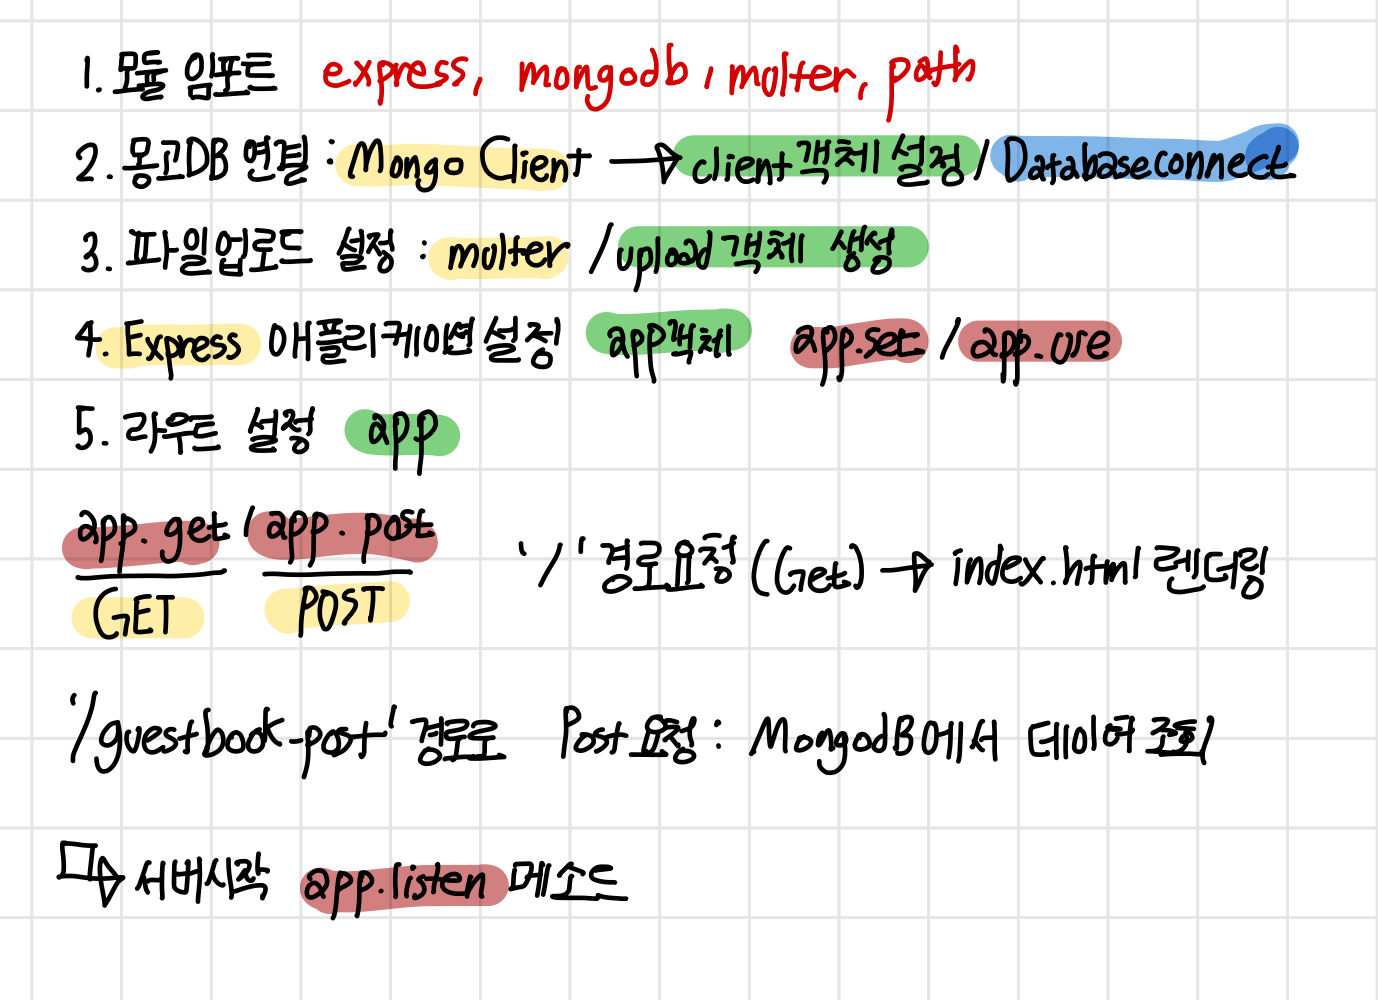 1. 모듈 임포트 express, mongodb, multer, path
2. 몽고DB 연결 : Mongo Client → client 객체 설정 / Database connect
3. 파일업로드 설정 : multer / upload 객체 생성
4. Express 애플리케이션 설정 app객체 app.set / app.use
5. 라우트 설정 app
app.get / app.post
GET POST
'/' 경로요청 (Get) → index.html 렌더링
'/guestbook-post' 경로로 Post 요청 : MongodB에서 데이터 조회
→ 서버시작 app.listen 메소드